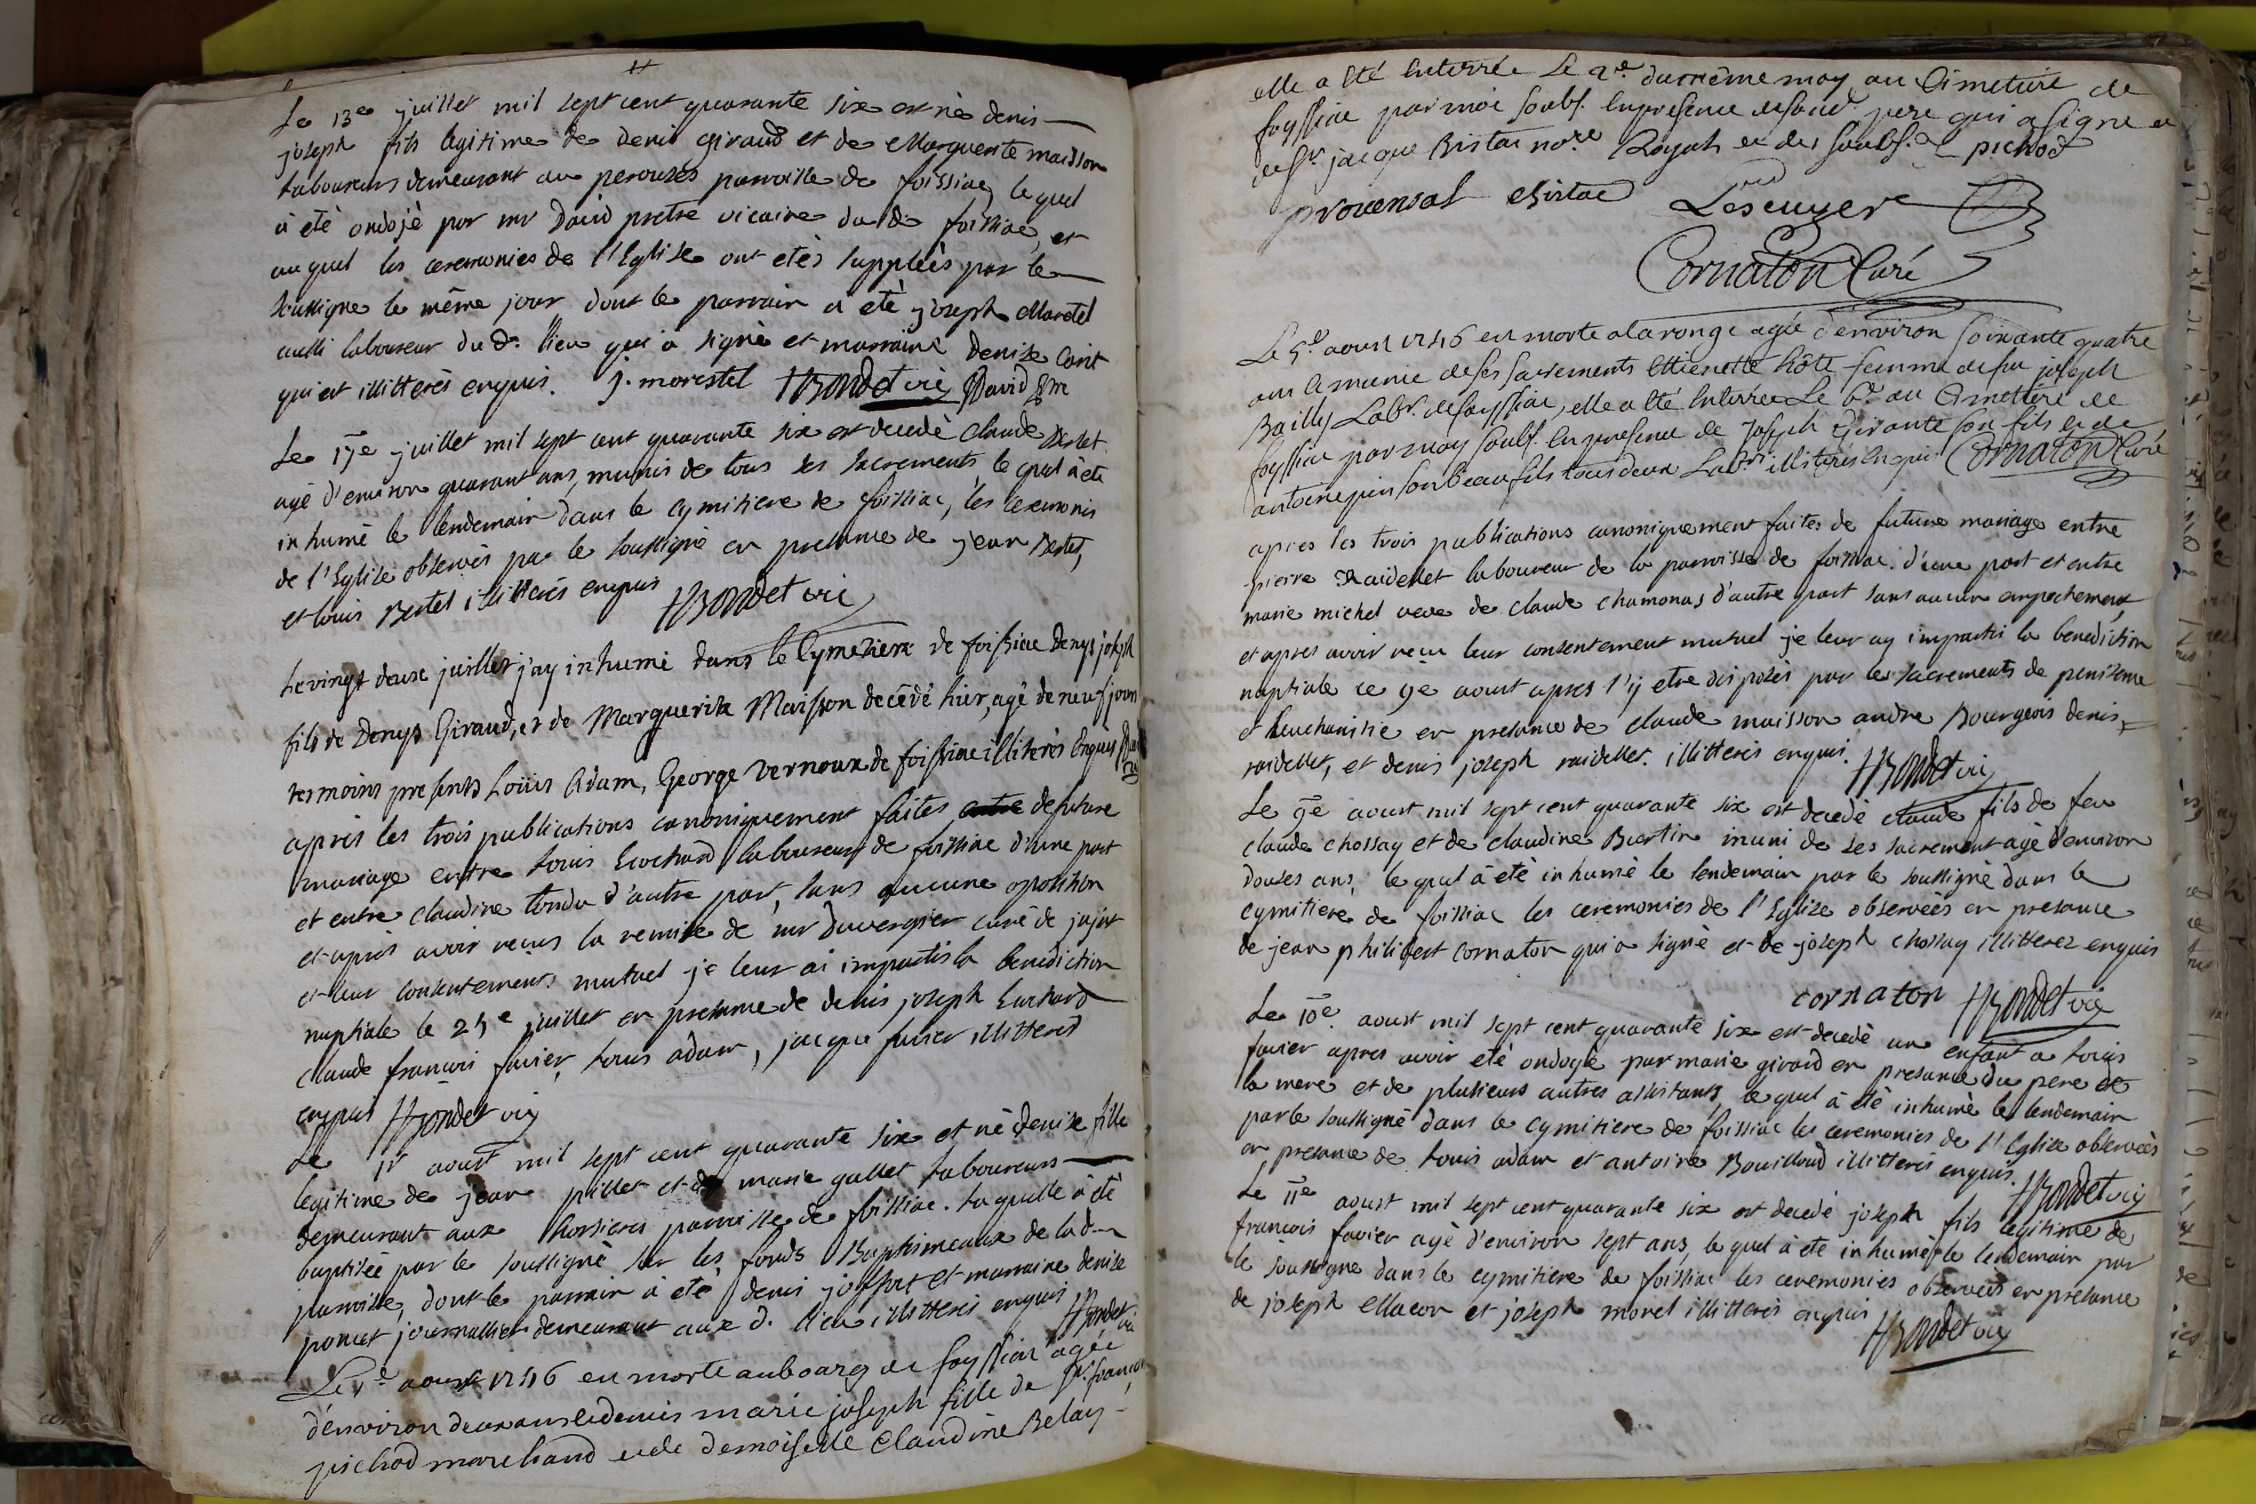 Le 13e juillet mil sept cent quarante six est né denis
joseph fils legitime de denis giraud et de Marguerite maisson
laboureurs demeurant au perouses parroisse de foissiac, le quel
à été ondojé par mr David pretre vicaire du d. foissiac, et
au quel les ceremonies de l'Eglise ont etés suppléés par le
soussigne le même jour dont le parrain a été joseph Marestel
aussi laboureur du d. lieu qui à signé et marraine denise Coint
qui est illitterés enquis. J. morestel HBondet vic David ptre
Le 17e juillet mil sept cent quarante six est decedé claude Bestet
agé d'environ quarant ans, munis de tous ses sacrements le quel à été
inhumé le lendemain dans le cymitiere de foissiac, les ceremonies
de l'Eglise observés par le soussigné en presance de jean Bestet,
et louis Bestet illitterés enquis HBondet vic
Le vingt deux juillet j'ay inhumé dans le Cymetiere de foissiac Denys joseph
fils de Denys Giraud, et de Marguerite Maisson decédé hier, agé de neuf jours
tesmoins presents Loüis Adam, George Vernoux de foissiac illiterés Enquis
après les trois publications canoniquement faites entre de future
mariage entre louis Lrochard laboureur de foissiac d'une part
et entre claudine tondu d'autre part, sans aucune oposition
et après avoir recus la remise de mr Duvergier curé de jajat
et leur consentements mutuel je leur ai impartis la benediction
nuptiale le 25e juillet en presanse de denis joseph Luchard
claude francois favier, louis adam, jacque favier illitterés
enquis HBondet vic
Le 1r aoust mil sept cent quarante six et né denise fille
legitime de jean pillet et de marie gallet laboureurs
demeurant aux parroisse de foissiac. la quelle à été
baptisée par le soussigné sur les fonds Baptismeaux de la d.
parroisse, dont le parrain à été denis joseph et marraine denise
poncet journallier demeurant aux d. lieu illitterés enquis HBondet vic
Le 1e aoust 1746 est morte au bourg de foyssiat agée
d'environ deux ans et demis marie joseph fille de Sr. françois
pichod marchand et de demoiselle Claudine Belay
elle a été Enterrée Le 2e. du même moy au Cimetiere de
foyssiac par moi soubs. En presence de son père qui a signé et
de Sr. jacque Bistac nore Royal et des soubs. pichod
provensal Bistac Lescuyer
Cornaton Curé
Le 5e aoust 1746 est morte a la ronge agée d'environ soixante quatre
ans et munie de ses sacrements Etienette hôte femme de feu joseph
Bailly Labr. de foyssiac, elle a été Enterrée Le 6e au Cimettere de
foyssiac par moy soubs. En presence de Joseph Girante son fils et de
antoine pin son beau fils tous deux Labrs illiterés Enquis Cornaton Curé
apres les trois publications canoniquement faites de future mariage entre
pierre Raidellet laboureur de la parroisse de foissiac. d'une part et entre
marie michel veve de claude chamonas d'autre part sans aucun empechement
et apres avoir recu leur consentement mutuel je leur ay impartis la benediction
nuptiale ce 9e aoust apres s'ij etre disposés par les sacrements de penitense
et leucharistie en presance de claude maisson andre Bourgeois denis
raidellet, et denis joseph raidellet. illitterés enquis. HBondet vic
Le 9e aoust mil sept cent quarante six est decedé claude fils de feu
claude chossay et de claudine Burtin muni de ses sacrement agé d'environ
douses ans, le quel à été inhumé le lendemain par le soussigné dans le
cymitiere de foissiac les ceremonies de l'Eglise observéés en presance
de jean philibert cornaton qui a signé et de joseph chossay illitterez enquis
cornaton HBondet vic
Le 10e aoust mil sept cent quarante six est decedé un enfant a louis
favier apres avoir eté ondoyé par marie girard en presance du pere de
la mere et de plusieurs autres assistants, le quel à été inhumé le lendemain
par le soussigné dans le cymitiere de foissiac les ceremonies de l'Eglise observéés
en presance de louis adam et antoine Bouilloud illitterés enquis. HBondet vic
Le 11e aoust mil sept cent quarante six est decedé joseph fils legitime de
francois favier agé d'environ sept ans, le quel à été inhumé le lendemain par
le soussigne dans le cymitiere de foissiac les ceremonies observéés en presance
de joseph Macon et joseph morel illitterés enquis
HBondet vic